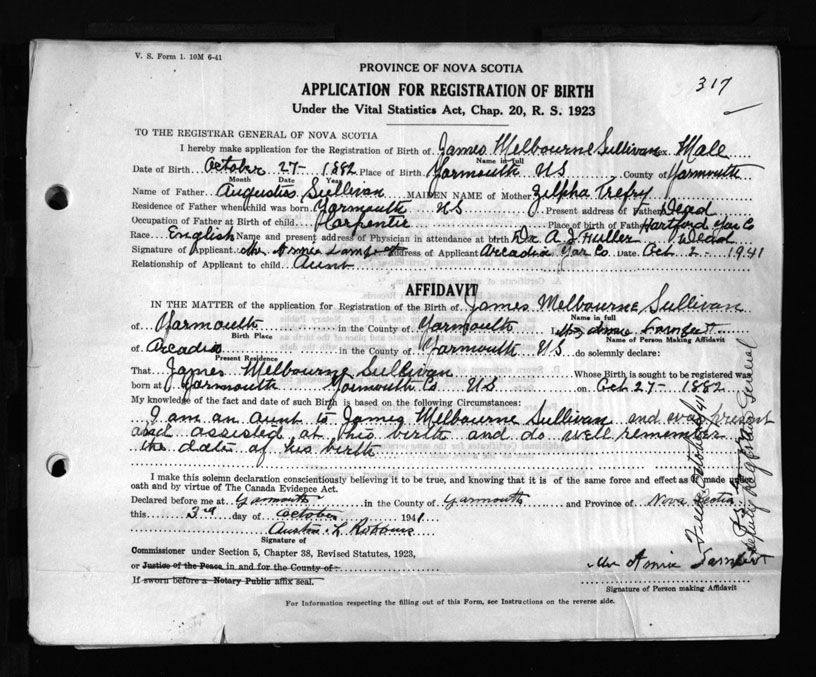 V. S. Form 1. 10M 6-41
317
PROVINCE OF NOVA SCOTIA
APPLICATION FOR REGISTRATION OF BIRTH
Under the Vital Statistics Act, Chap. 20, R. S. 1923
TO THE REGISTRAR GENERAL OF NOVA SCOTIA
I hereby make application for the Registration of Birth of James Melbourne Sullivan Sex Male
Name in full
Date of Birth October 27 - 1882 Place of Birth Yarmouth NS County of Yarmouth
Month Date Year
Name of Father Augustus Sullivan MAIDEN NAME of Mother Zilpha Trefry
Residence of Father when child was born Yarmouth NS Present address of Father Dead
Occupation of Father at Birth of child Karpenter Place of birth of Father Hartford Yar Co
Race English Name and present address of Physician in attendance at birth Dr A. J. Fuller Dead
Signature of Applicant Mrs Annie Address of Applicant Arcadia Yar Co. Date Oct 2 - 1941
Relationship of Applicant to child Aunt
AFFIDAVIT
IN THE MATTER of the application for Registration of the Birth of James Melbourne Sullivan
Name in full
of Yarmouth in the County of Yarmouth I, Mrs Annie
Birth Place Name of Person Making Affidavit
of Arcadia in the County of Yarmouth NS do solemnly declare:
Present Residence
That James Melbourne Sullivan Whose Birth is sought to be registered was
born at Yarmouth Yarmouth Co. NS on Oct 27 - 1882
My knowledge of the fact and date of such Birth is based on the following Circumstances:
I am an aunt to James Melbourne Sullivan and was present
and assisted at his birth and do well remember
the date of his birth
I make this solemn declaration conscientiously believing it to be true, and knowing that it is of the same force and effect as if made under
oath and by virtue of The Canada Evidence Act.
Declared before me at Yarmouth in the County of Yarmouth and Province of Nova Scotia
this 3rd day of October 1941
Austin L Robbins
Signature of
Commissioner under Section 5, Chapter 38, Revised Statutes, 1923,
or Justice of the Peace in and for the County of
If sworn before a Notary Public affix seal.
Mrs Annie
Signature of Person making Affidavit
For Information respecting the filling out of this Form, see Instructions on the reverse side.
Filed October 41
Deputy Registrar General